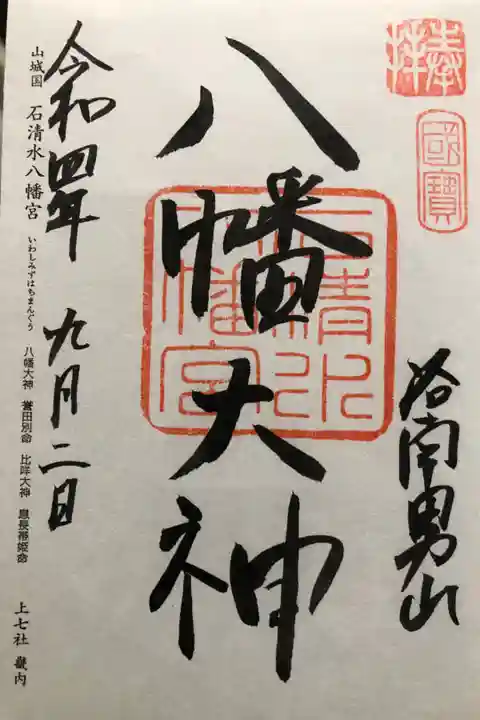 奉拝
國寶
洛南男山
八幡大神
石清水八幡宮
令和四年 九月二日
山城国 石清水八幡宮 いわしみずはちまんぐう 八幡大神 誉田別命 比咩大神 息長帯姫命 上七社 畿内